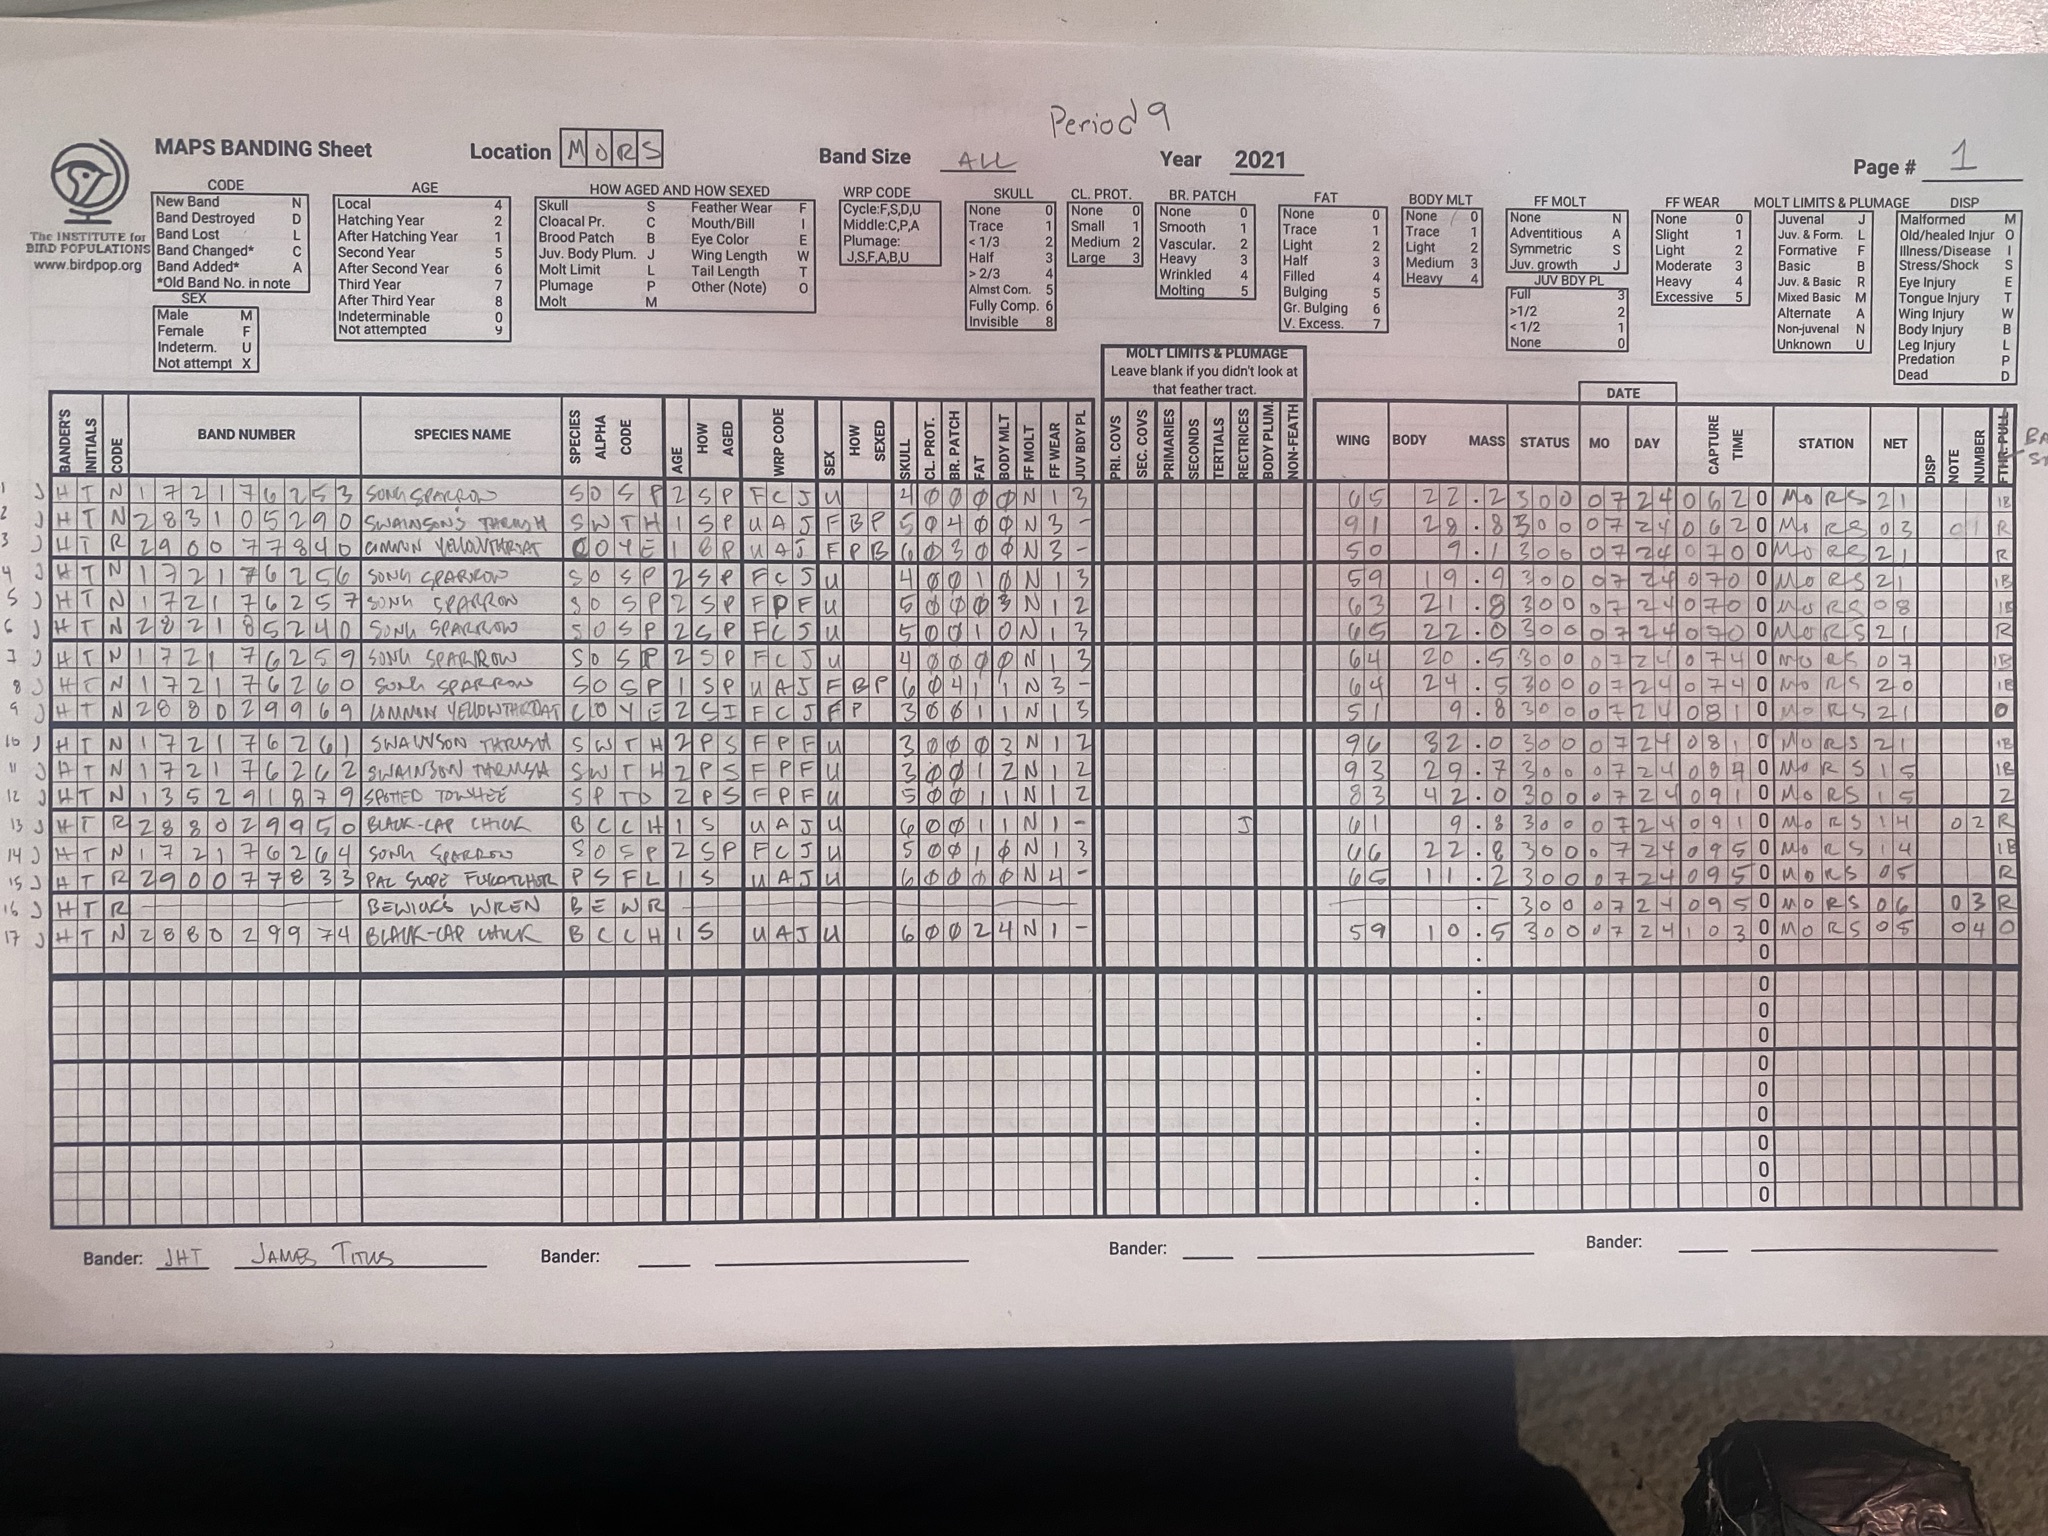 Period 9
MAPS BANDING Sheet Location MORS Band Size ALL Year 2021 Page # 1
The INSTITUTE for
BIRD POPULATIONS
www.birdpop.org
CODE
New Band N
Band Destroyed D
Band Lost L
Band Changed* C
Band Added* A
*Old Band No. in note
SEX
Male M
Female F
Indeterm. U
Not attempt X
AGE
Local 4
Hatching Year 2
After Hatching Year 1
Second Year 5
After Second Year 6
Third Year 7
After Third Year 8
Indeterminable 0
Not attempted 9
HOW AGED AND HOW SEXED
Skull S Feather Wear F
Cloacal Pr. C Mouth/Bill I
Brood Patch B Eye Color E
Juv. Body Plum. J Wing Length W
Molt Limit L Tail Length T
Plumage P Other (Note) O
Molt M
WRP CODE
Cycle:F,S,D,U
Middle:C,P,A
Plumage:
J,S,F,A,B,U
SKULL
None 0
Trace 1
< 1/3 2
Half 3
> 2/3 4
Almst Com. 5
Fully Comp. 6
Invisible 8
CL. PROT.
None 0
Small 1
Medium 2
Large 3
BR. PATCH
None 0
Smooth 1
Vascular. 2
Heavy 3
Wrinkled 4
Molting 5
FAT
None 0
Trace 1
Light 2
Half 3
Filled 4
Bulging 5
Gr. Bulging 6
V. Excess. 7
BODY MLT
None 0
Trace 1
Light 2
Medium 3
Heavy 4
FF MOLT
None N
Adventitious A
Symmetric S
Juv. growth J
JUV BDY PL
Full 3
>1/2 2
< 1/2 1
None 0
FF WEAR
None 0
Slight 1
Light 2
Moderate 3
Heavy 4
Excessive 5
MOLT LIMITS & PLUMAGE
Juvenal J
Juv. & Form. L
Formative F
Basic B
Juv. & Basic R
Mixed Basic M
Alternate A
Non-juvenal N
Unknown U
DISP
Malformed M
Old/healed Injur O
Illness/Disease I
Stress/Shock S
Eye Injury E
Tongue Injury T
Wing Injury W
Body Injury B
Leg Injury L
Predation P
Dead D
MOLT LIMITS & PLUMAGE
Leave blank if you didn't look at
that feather tract.
DATE
BANDER'S INITIALS CODE BAND NUMBER SPECIES NAME SPECIES ALPHA CODE AGE HOW AGED WRP CODE SEX HOW SEXED SKULL CL. PROT. BR. PATCH FAT BODY MLT FF MOLT FF WEAR JUV BDY PL PRI. COVS SEC. COVS PRIMARIES SECONDS TERTIALS RECTRICES BODY PLUM. NON-FEATH WING BODY MASS STATUS MO DAY CAPTURE TIME STATION NET DISP NOTE NUMBER FTHR PULL
1 JHT N 172176253 SONG SPARROW SOSP 2 SP FCJ U 4 0 0 0 0 N 1 3 65 22.2 300 07 24 0620 MORS 21 1B
2 JHT N 283105290 SWAINSON'S THRUSH SWTH 1 SP UAJ F BP 5 0 4 0 0 N 3 - 91 28.8 300 07 24 0620 MORS 03 01 R
3 JHT R 290077840 COMMON YELLOWTHROAT COYE 1 BP UAJ F PB 6 0 3 0 0 N 3 - 50 9.1 300 07 24 0700 MORS 21 R
4 JHT N 172176256 SONG SPARROW SOSP 2 SP FCJ U 4 0 0 1 0 N 1 3 59 19.9 300 07 24 0700 MORS 21 1B
5 JHT N 172176257 SONG SPARROW SOSP 2 SP FPF U 5 0 0 0 3 N 1 2 63 21.8 300 07 24 0700 MORS 08 1B
6 JHT N 282185240 SONG SPARROW SOSP 2 SP FCJ U 5 0 0 1 0 N 1 3 65 22.0 300 07 24 0700 MORS 21 R
7 JHT N 172176259 SONG SPARROW SOSP 2 SP FCJ U 4 0 0 0 0 N 1 3 64 20.5 300 07 24 0740 MORS 07 1B
8 JHT N 172176260 SONG SPARROW SOSP 1 SP UAJ F BP 6 0 4 1 1 N 3 - 64 24.5 300 07 24 0740 MORS 20 1B
9 JHT N 288029969 COMMON YELLOWTHROAT COYE 2 SI FCJ F P 3 0 0 1 1 N 1 3 51 9.8 300 07 24 0810 MORS 21 0
10 JHT N 172176261 SWAINSON THRUSH SWTH 2 PS FPF U 3 0 0 0 3 N 1 2 96 32.0 300 07 24 0810 MORS 21 1B
11 JHT N 172176262 SWAINSON THRUSH SWTH 2 PS FPF U 3 0 0 1 2 N 1 2 93 29.7 300 07 24 0840 MORS 15 1B
12 JHT N 135291879 SPOTTED TOWHEE SPTO 2 PS FPF U 5 0 0 1 1 N 1 2 83 42.0 300 07 24 0910 MORS 15 2
13 JHT R 288029950 BLACK-CAP CHICK BCCH 1 S UAJ U 6 0 0 1 1 N 1 - J 61 9.8 300 07 24 0910 MORS 14 02 R
14 JHT N 172176264 SONG SPARROW SOSP 2 SP FCJ U 5 0 0 1 0 N 1 3 66 22.8 300 07 24 0950 MORS 14 1B
15 JHT R 290077833 PAC SLOPE FLYCATCHER PSFL 1 S UAJ U 6 0 0 0 0 N 4 - 65 11.2 300 07 24 0950 MORS 05 R
16 JHT R BEWICK'S WREN BEWR . 300 07 24 0950 MORS 06 03 R
17 JHT N 288029974 BLACK-CAP CHICK BCCH 1 S UAJ U 6 0 0 2 4 N 1 - 59 10.5 300 07 24 1030 MORS 08 04 0
. 0
. 0
. 0
. 0
. 0
. 0
. 0
. 0
. 0
. 0
Bander: JHT JAMES TITUS Bander: Bander: Bander: